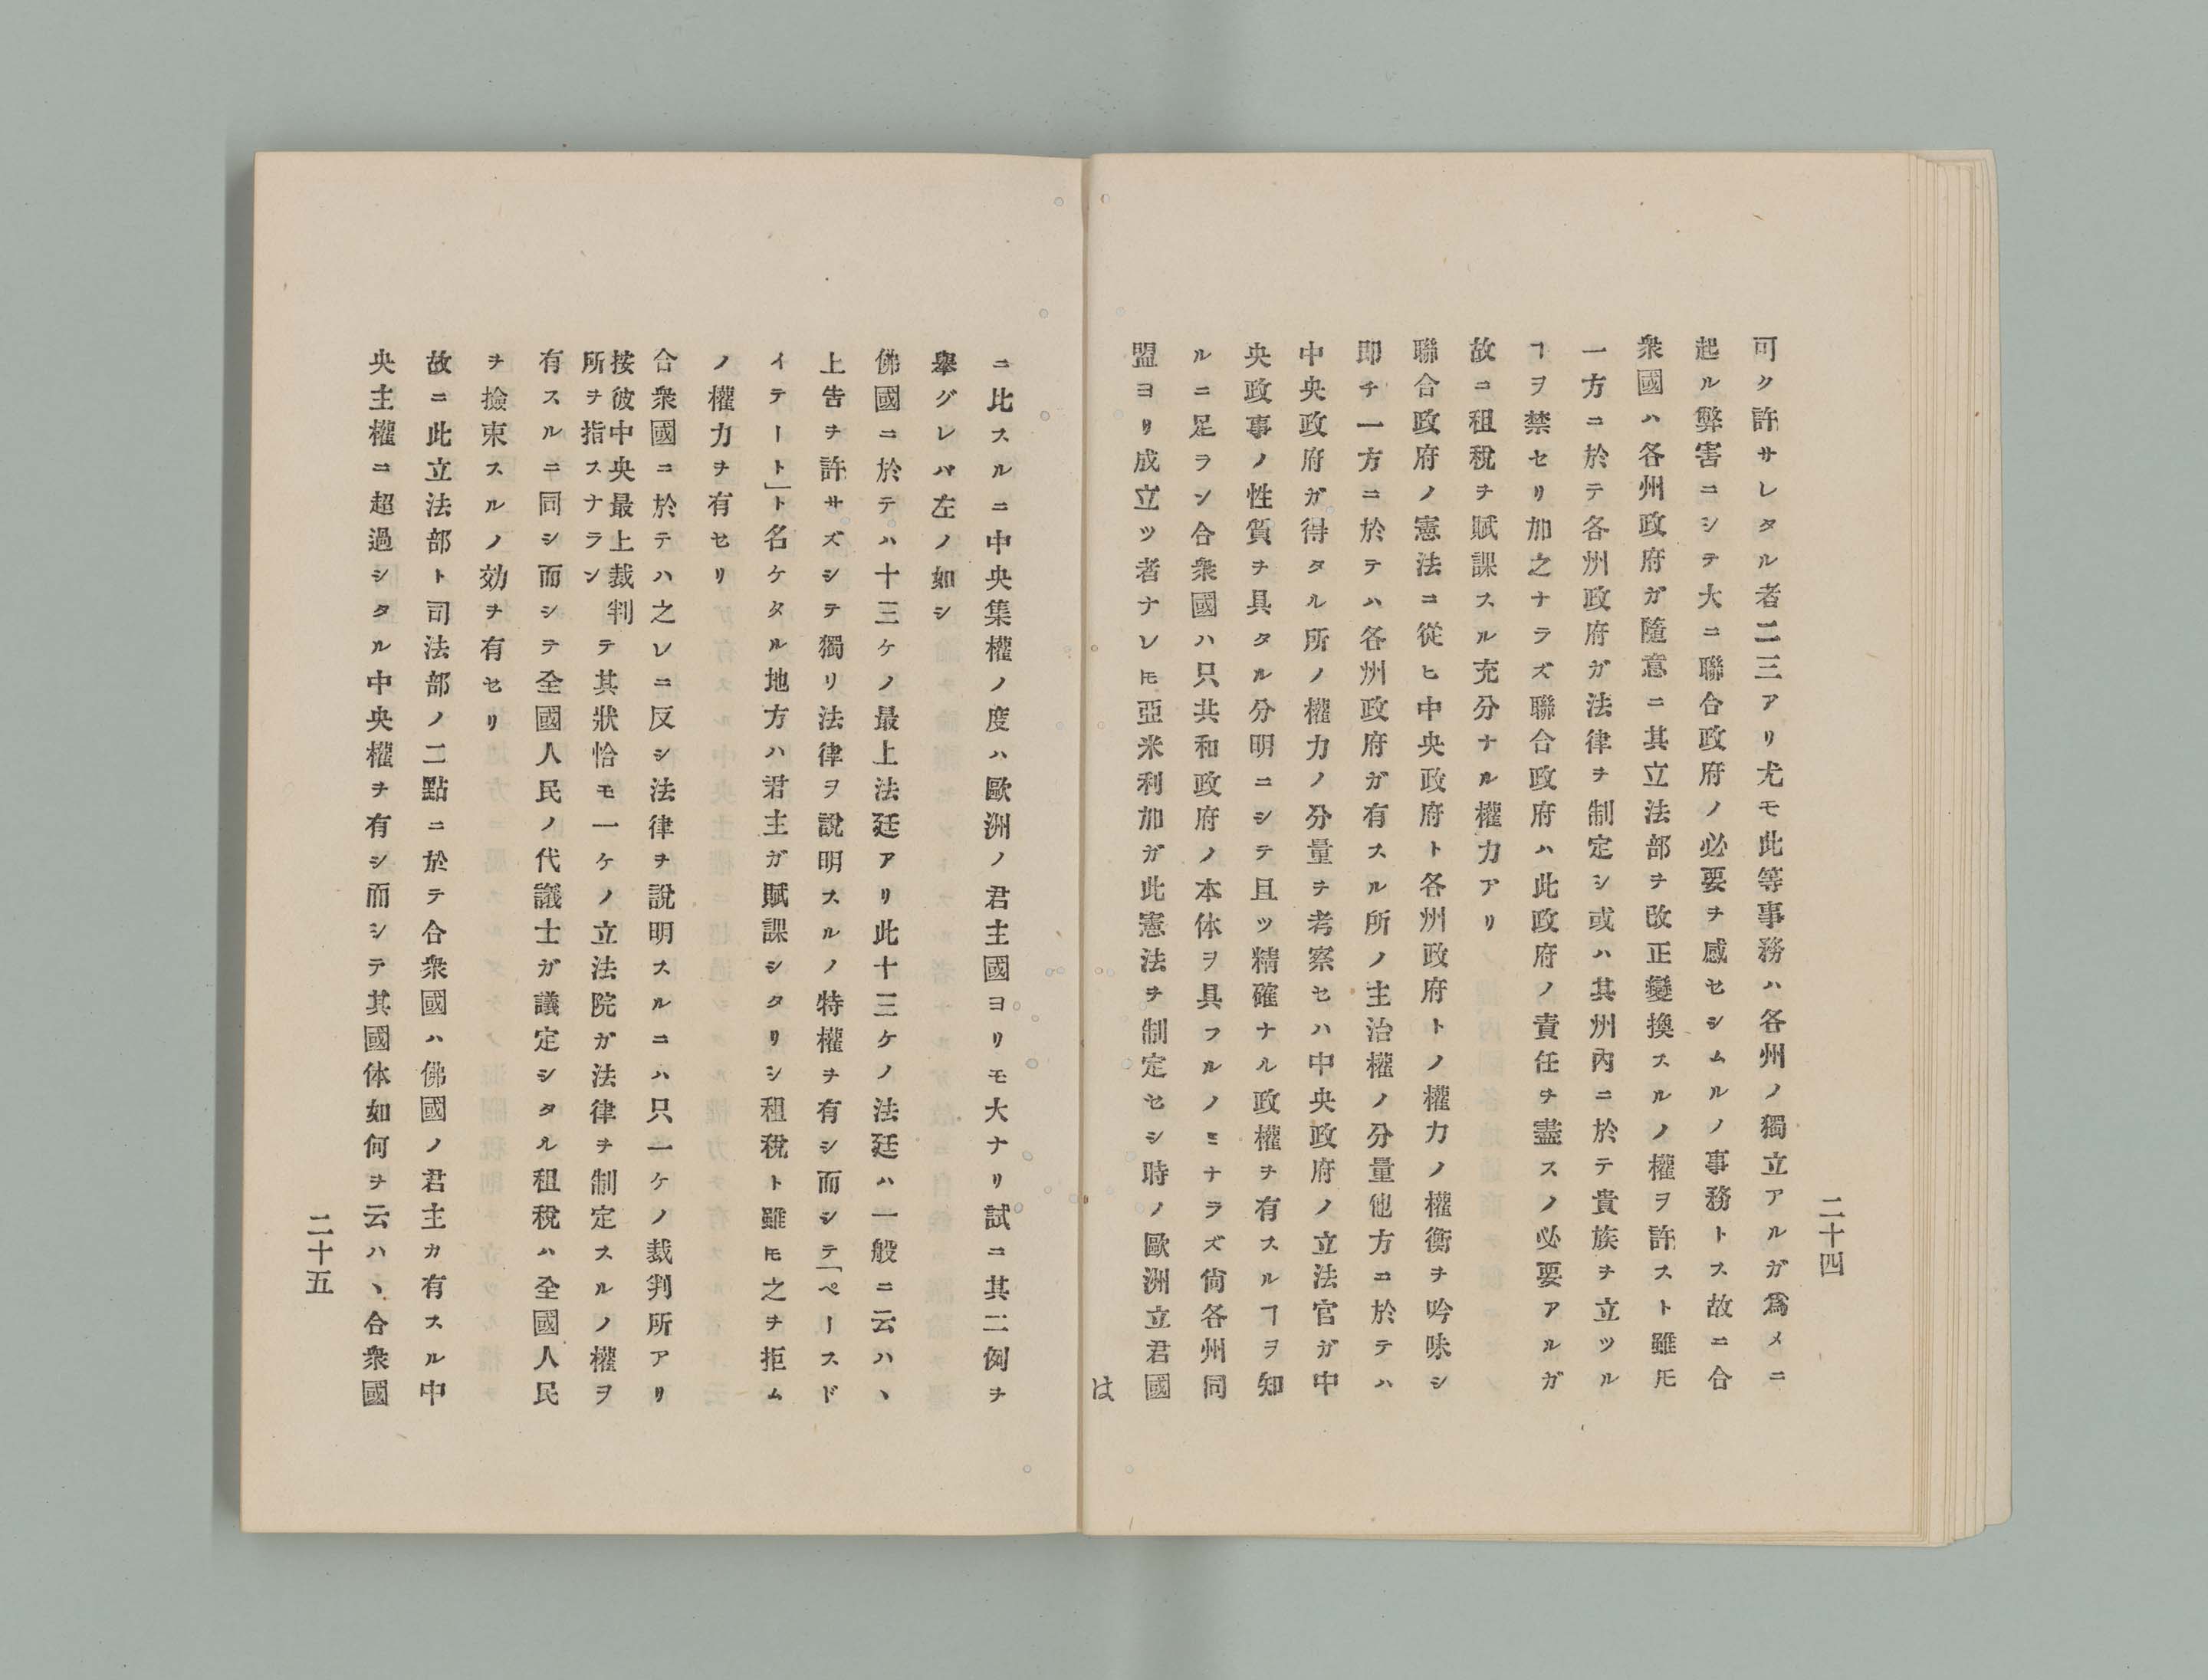 二十四
可ク許サレタル者二三アリ尤モ此等事務ハ各州ノ獨立アルガ爲メニ
起ル弊害ニシテ大ニ聯合政府ノ必要ヲ感セシムルノ事務トス故ニ合
衆國ハ各州政府ガ隨意ニ其立法部ヲ改正變換スルノ權ヲ許スト雖𪜈
一方ニ於テ各州政府ガ法律ヲ制定シ或ハ其州内ニ於テ貴族ヲ立ツル
ヿヲ禁セリ加之ナラズ聯合政府ハ此政府ノ責任ヲ盡スノ必要アルガ
故ニ租税ヲ賦課スル充分ナル權力アリ
聯合政府ノ憲法ニ從ヒ中央政府ト各州政府トノ權力ノ權衡ヲ吟味シ
即チ一方ニ於テハ各州政府ガ有スル所ノ主治權ノ分量他方ニ於テハ
中央政府ガ得タル所ノ權力ノ分量ヲ考察セハ中央政府ノ立法官ガ中
央政事ノ性質ヲ具タル分明ニシテ且ツ精確ナル政權ヲ有スルヿヲ知
ルニ足ラン合衆國ハ只共和政府ノ本体ヲ具フルノミナラズ尙各州同
盟ヨリ成立ツ者ナレ𪜈亞米利加ガ此憲法ヲ制定セシ時ノ歐洲立君國
は
ニ比スルニ中央集權ノ度ハ歐洲ノ君主國ヨリモ大ナリ試ニ其二例ヲ
擧グレバ左ノ如シ
佛國ニ於テハ十三ケノ最上法廷アリ此十三ケノ法廷ハ一般ニ云ハヽ
上告ヲ許サズシテ獨リ法律ヲ說明スルノ特權ヲ有シ而シテ「ペースド
イテート」ト名ケタル地方ハ君主ガ賦課シタリシ租税ト雖𪜈之ヲ拒ム
ノ權力ヲ有セリ
合衆國ニ於テハ之レニ反シ法律ヲ說明スルニハ只一ケノ裁判所アリ
按彼中央最上裁判
所ヲ指スナラン
テ其狀恰モ一ケノ立法院ガ法律ヲ制定スルノ權ヲ
有スルニ同シ而シテ全國人民ノ代議士ガ議定シタル租税ハ全國人民
ヲ撿束スルノ効ヲ有セリ
故ニ此立法部ト司法部ノ二點ニ於テ合衆國ハ佛國ノ君主カ有スル中
央主權ニ超過シタル中央權ヲ有シ而シテ其國体如何ヲ云ハヽ合衆國
二十五